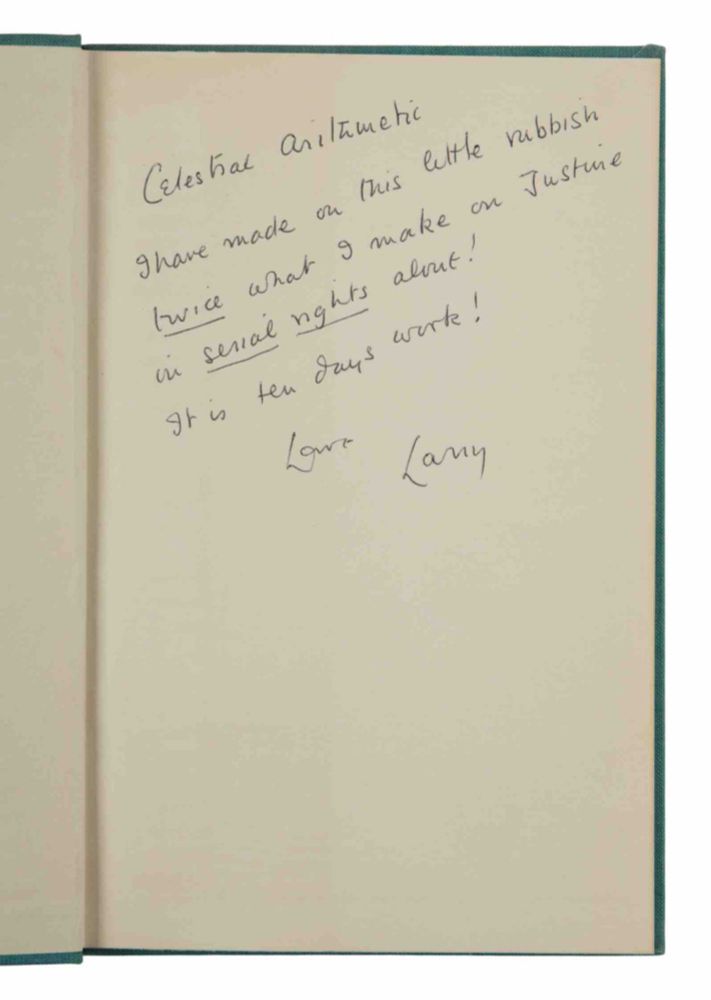 Celestial arithmetic
I have made on this little rubbish
twice what I make on Justine
in serial rights about!
It is ten days work!
Love Larry